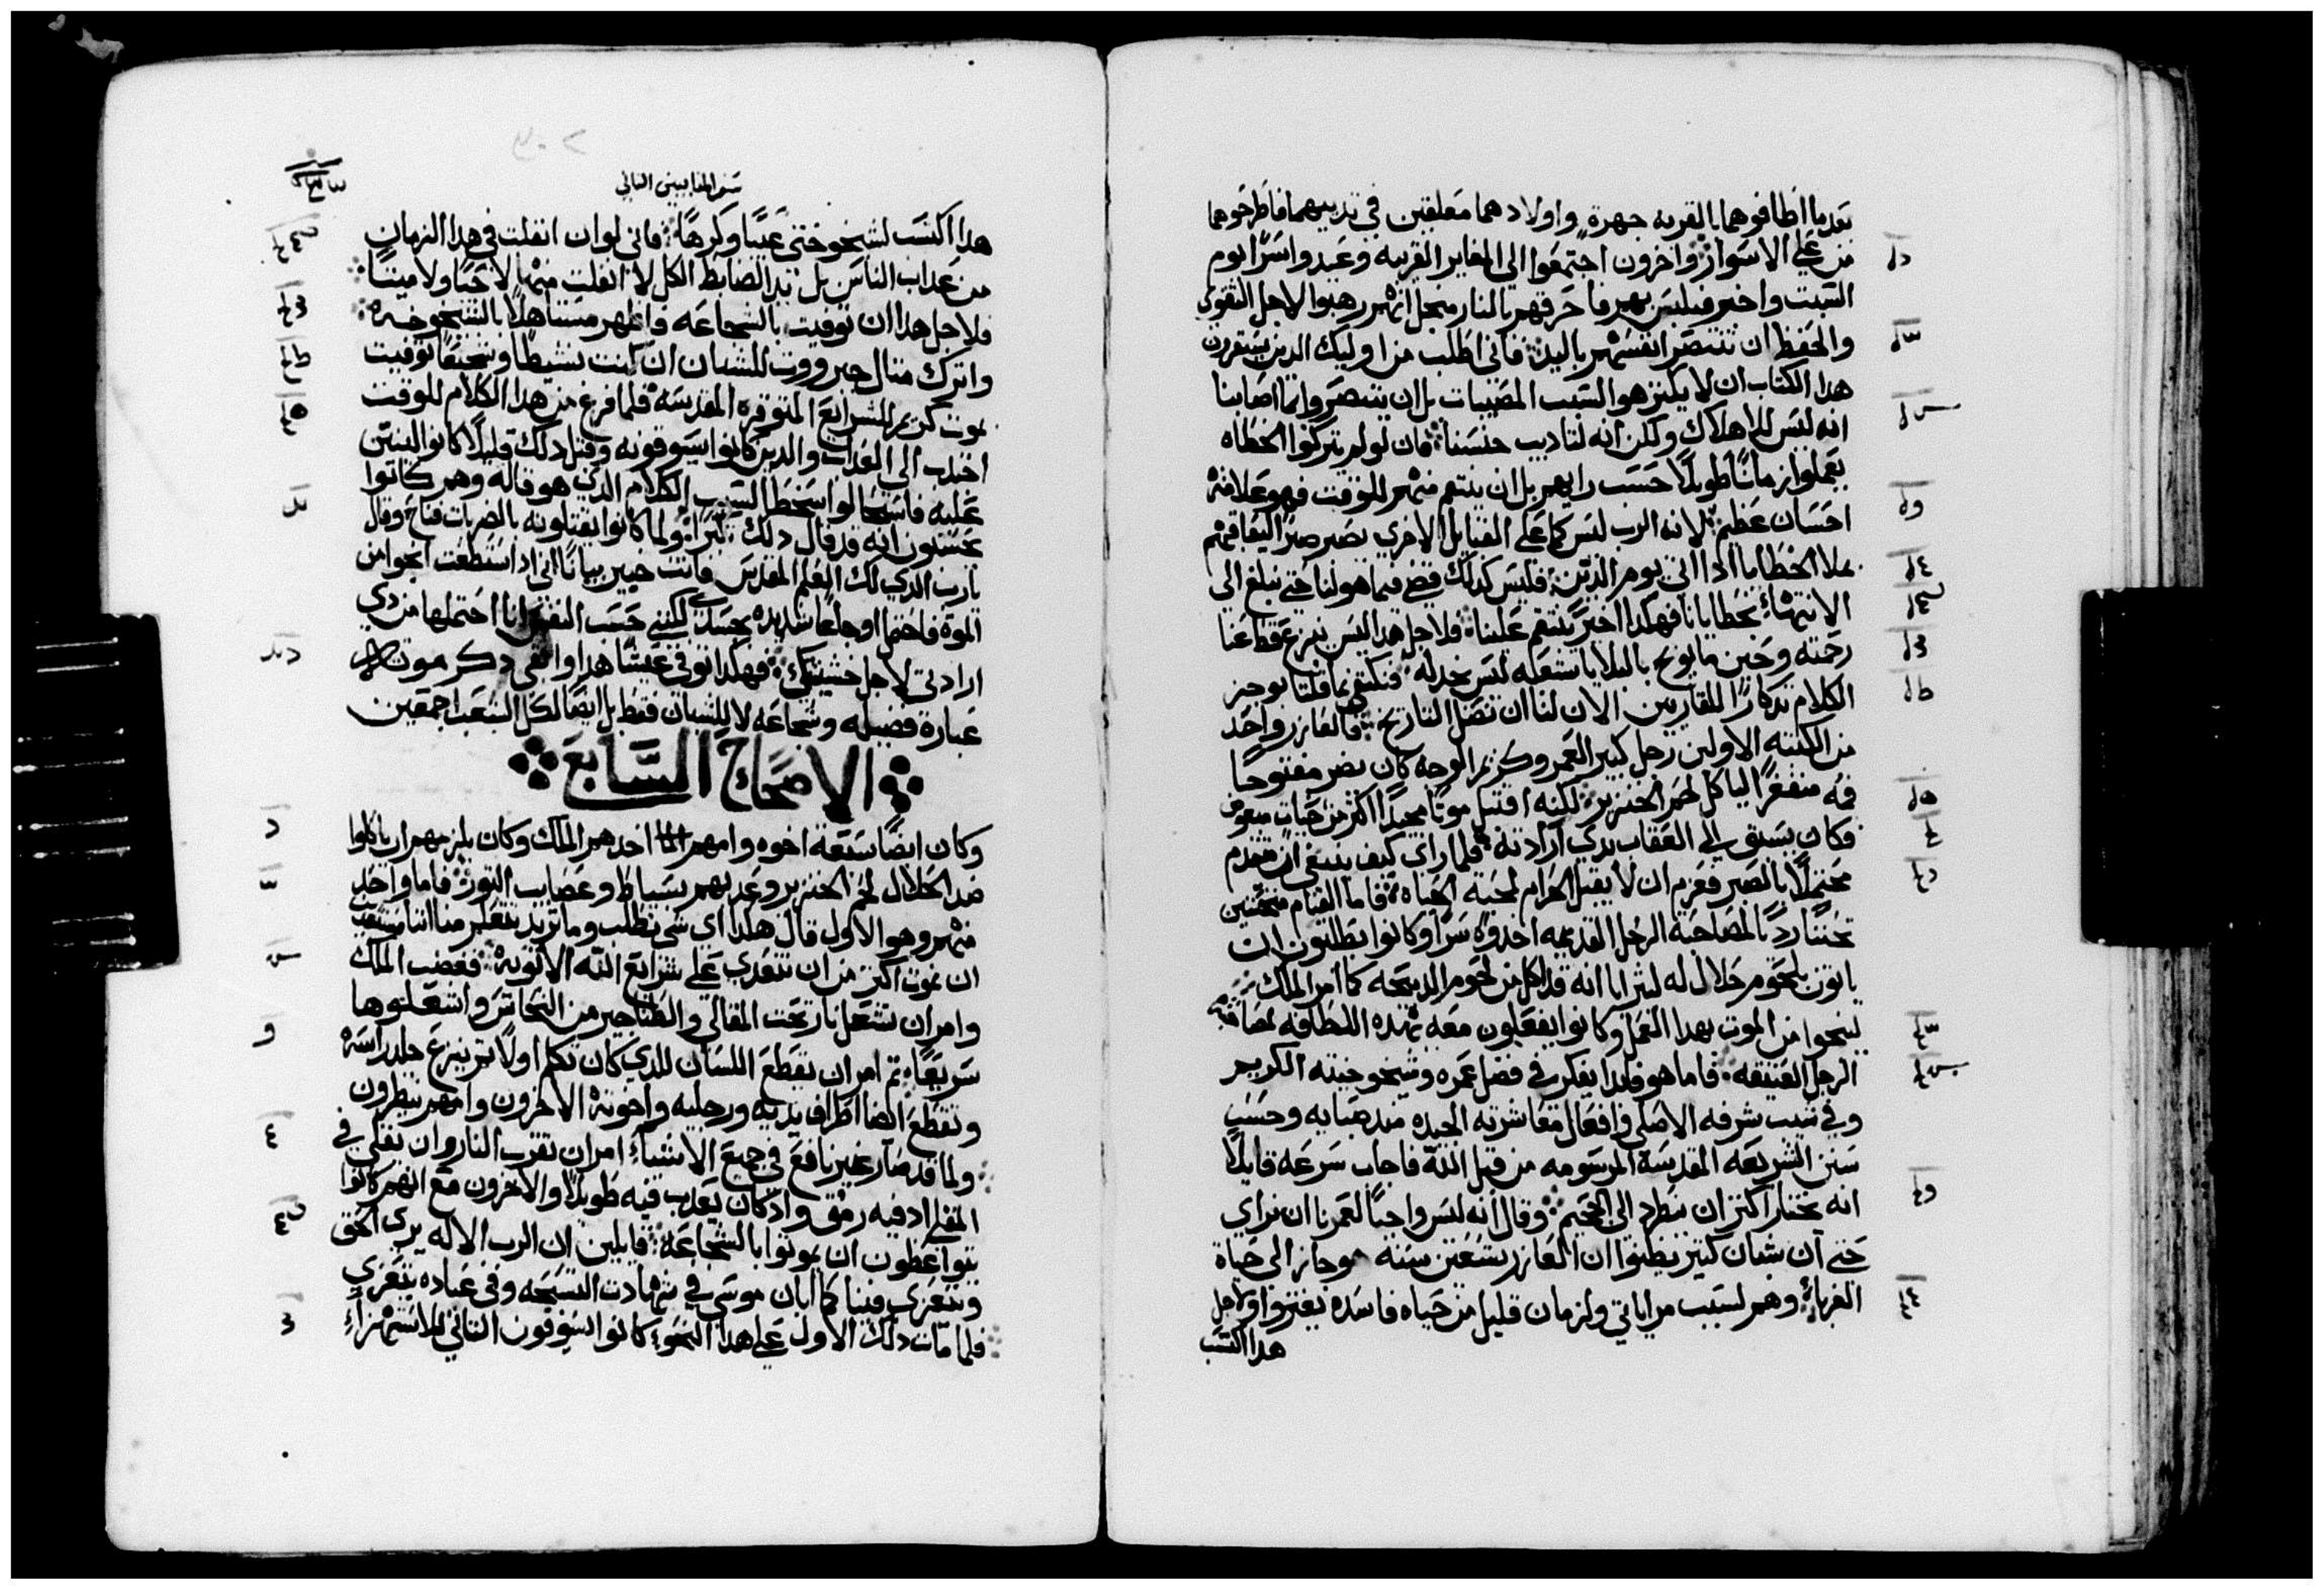 بعد ما اطافوهما بالقريه جهرة واولادهما معلقين في تدييهما فاطرحوهما
من علي الاسوار واخرون اجتمعوا الي المغاير القريبه وعيدوا سرا يوم
السبت واخبر فيلبس بهم فاحرقهم بالنار منجل انهم رهبوا لاجل التقوي
والحفظ ان تنتصر انفسهم باليد فاني اطلب من اوليك الدين يقرون
هدا الكتاب ان لا يكترهوا لسبب المصيبات بل ان يتبصروا بما اصابنا
انه ليس للاهلاك ولكن انه لتاديب جنسنا فان لو لم يتركوا الخطاه
يعملوا زمانا طويلا حسب رايهم بل ان ينتقم منهم للوقت فهو علامة
احسان عظيم لانه الرب ليس كما على القبايل الاخري يصبر صبرا ليعاقبهم
بملا الخطايا ادا اتي يوم الدين فليس كدلك قضي فيما هو لنا حتي نبلغ الي
الانتهاء بخطايانا فهكدا اخيرا ينتقم علينا فلاجل هدا ليس ينزع قط عنا
رحمته وحين ما يوبخ بالبلايا شعبه ليس يخدله فنكتفي بما قلنا بوجيز
الكلام تدكارا للقاريين الان لنا ان نصل التاريخ فالعازر واحد
من الكتبه الاولين رجل كبير العمر وكريم الوجه كان يضر مفتوحا
فمه منفغرا لياكل لحم الخنزير لكنه اقتبل موتا مجيدا اكتر من حيات مبغوض
فكان يسبق الي العقاب بدي ارادته فلما راي كيف ينبغي ان يتقدم
محتملا بالصبر فعزم ان لا يقبل الحرام لمحبة الحياه فاما القيام متحننين
تحننا رديا لمصاحبة الرجل القديمه اخدوه سرا وكانوا يطلبون ان
ياتون بلحوم حلال له ليترايا انه قد اكل من لحوم الدبيحه كما امر الملك
لينجوا من الموت بهدا العمل وكانوا يفعلون معه بهده اللطافه لمصادقة
الرجل العتيقه فاما هو فابدا يفكر في فضل عمره وشيخوخيته الكريم
وفي شيب شرفه الاصلي وافعال معاشرته الجيده مند صبايه وحسب
سنن الشريعه المقدسة المرسومه من قبل الله فاجاب سرعه قايلا
انه يختار اكتر ان يطرد الي الجحيم وقال انه ليس واجبا لعمرنا ان نراي
حتي ان شبان كتير يظنوا ان العازر بتسعين سنه جاز الي حياة
الغرباء وهم لسبب مراياتي ولزمان قليل من حياه فاسده يغتروا ولاجل
هدا اكتسب
سفر المقابيين التاني
هدا اكتسب لشيخوختي عيبا وكرها فاني لو ان انفلت في هدا الزمان
من عداب الناس بل يد الضابط الكل لا انفلت منها لا حيا ولا ميتا
فلاجل هدا ان توفيت بالشجاعه فاظهر مستاهلا بالشيخوخه
واترك متال جبرووت للشبان ان كنت نشيطا وشجيعا توفيت
بموت كريم للشرايع المتوقره المقدسه فلما فرغ من هدا الكلام للوقت
اجتدب الي العداب والدين كانوا يسوقونه وقبل دلك قليلا كانوا لينين
عليه فاستحالوا سخطا لسبب الكلام الدي هو قاله وهم كانوا
يحسبون انه قد قال دلك تكبرا ولما كانوا يقتلونه بالضربات فناح وقال
يارب الدي لك العلم المقدس فانت خبير بيانا اني اد استطعت انجوا من
الموت فاحتمل اوجاعا شديده بجسدي لكنني حسب النفس انا احتملها من دي
ارادتي لاجل خشيتك فهكدا توفي عيشا هدا وابقي دكر موته
عبارة فضيله وشجاعه لا للشبان فقط بل ايضا لكل الشعب اجمعين
الاصحاح السابع
وكان ايضا سبعة اخوه وامهم اخدهم الملك وكان يلزمهم ان ياكلوا
ضد الحلال لحم الخنزير وعدبهم بسياط وعصايب التور فاما واحد
منهم وهو الاول قال هكدا اي شي تطلب وما تريد تتعلم منا اننا مستعدين
ان نموت اكتر من ان نتعدي علي شرايع الله الابويه فغضب الملك
وامر ان تشعل نار تحت المقالي والطناجير من النحاس واشعلوها
سريعا تم امر ان تقطع اللسان للدي كان تكلم اولا تم ينزع جلد راسه
وتقطع ايضا اطراف يديه ورجليه واخوته الاخرون وامهم ينظرون
ولما قد صار غير نافع في جميع الاشياء امر ان تقرب النار وان تقلي في
المقلي اد فيه رمق واد كان يعدب فيه طويلا والاخرون مع امهم كانوا
يتواعظون ان يموتوا بالشجاعه قايلين ان الرب الاله يري الحق
ويتعزي فينا كما ابان موسي في شهادت التسبحه وفي عباده يتعزي
فلما مات دلك الاول علي هدا النحو كانوا يسوقون التاني للاستهزاء